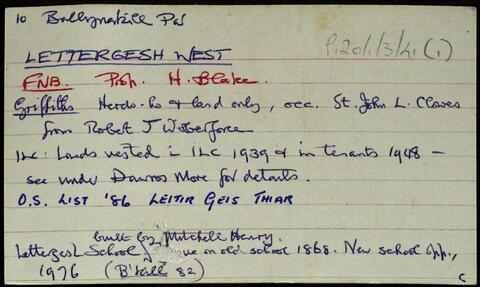 10 Ballynakill Par
P120/1/3/41 (1)
LETTERGESH WEST
FNB. Prop. H. Blake.
Griffiths Herds-ho & land only, occ. St. John L. Clowes
from Robert J Wilberforce
ILC: Lands vested in ILC 1939 & in tenants 1948 –
see under Dawros More for details.
O.S. LIST '86 LEITIR GEIS THIAR
built by Mitchell Henry.
Lettergesh School, on old school 1868. New school opp.,
1976 (B'kill 82)